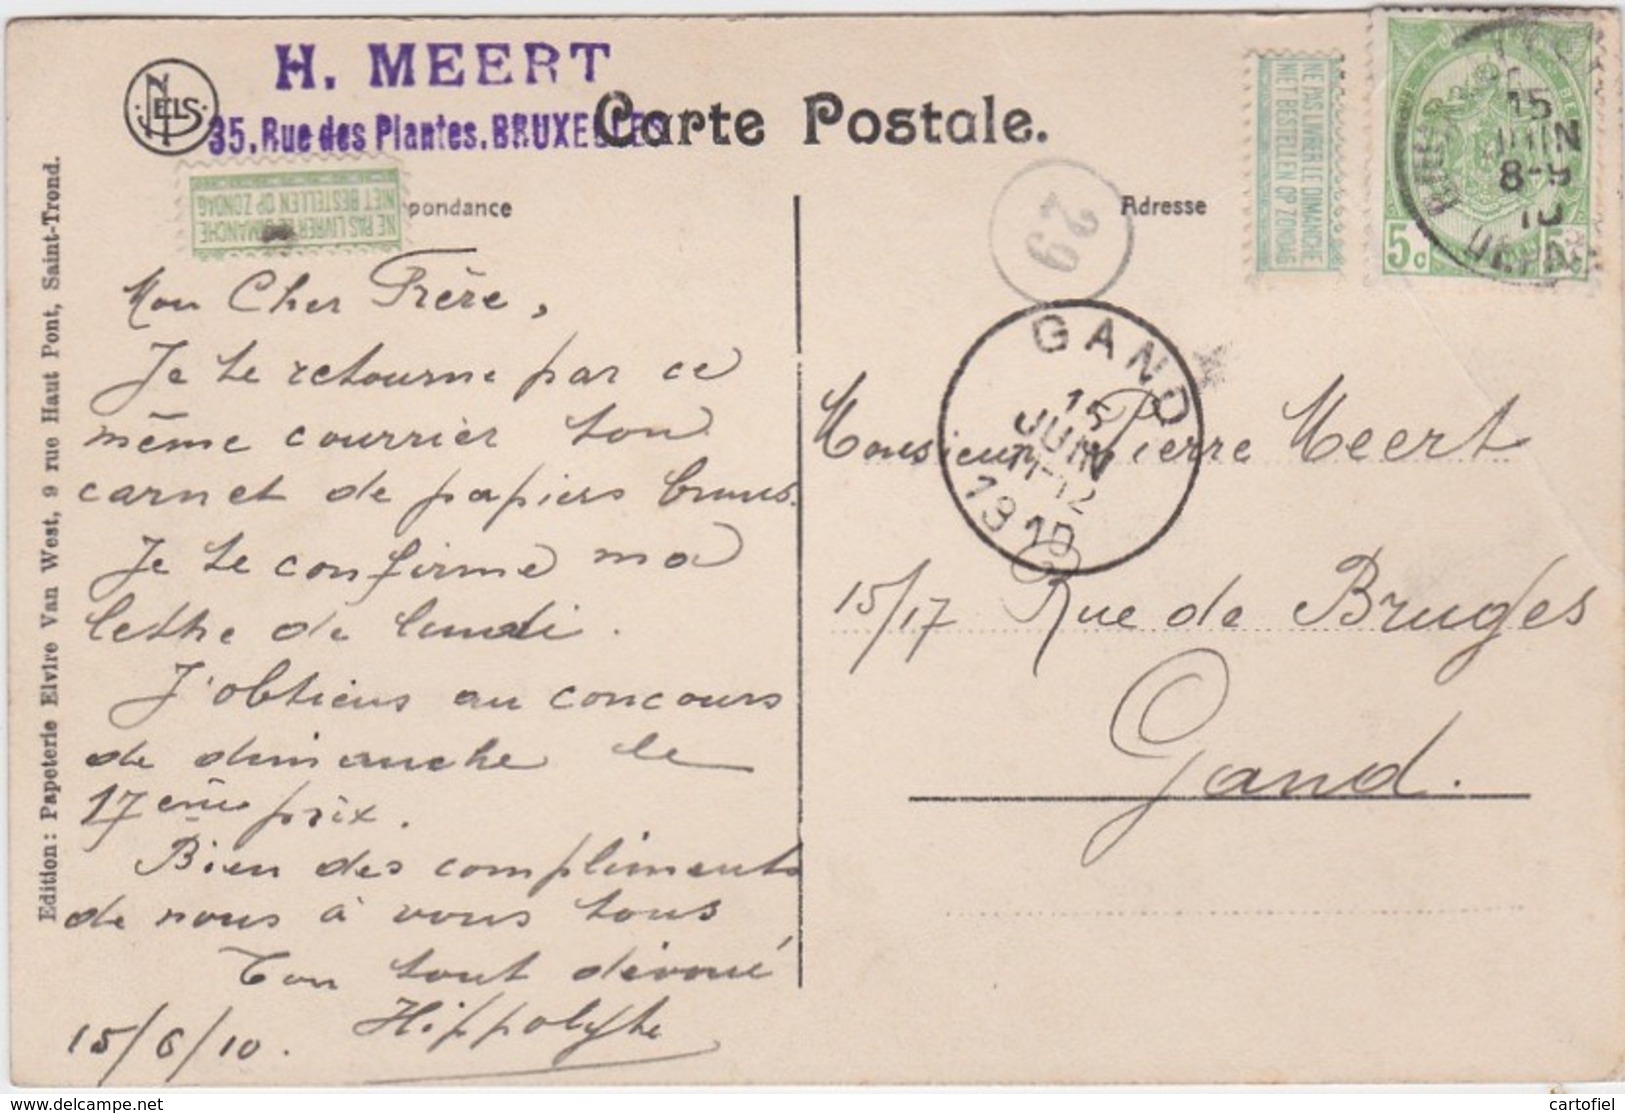 NELS
H. MEERT
35, Rue des Plantes. BRUXELLES
Carte Postale.
pondance
Adresse
NE PAS LIVRER LE DIMANCHE
NIET BESTELLEN OP ZONDAG
NE PAS LIVRER LE DIMANCHE
NIET BESTELLEN OP ZONDAG
5c 5c
15
JUIN
8-9
10
29
GAND
15
JUIN
11-12
1910
Mon Cher Frère,
Je te retourne par ce
même courrier ton
carnet de papiers
Je te confirme ma
lettre de lundi.
J'obtiens au concours
de dimanche le
17ème prix.
Bien des compliments
de nous à vous tous
Ton tout dévoué
Hippolyte
15/6/10.
Monsieur Pierre Meert
15/17 Rue de Bruges
Gand.
Edition: Papeterie Elvire Van West, 9 rue Haut Pont, Saint-Trond.
https://www.delcampe.net
cartofiel